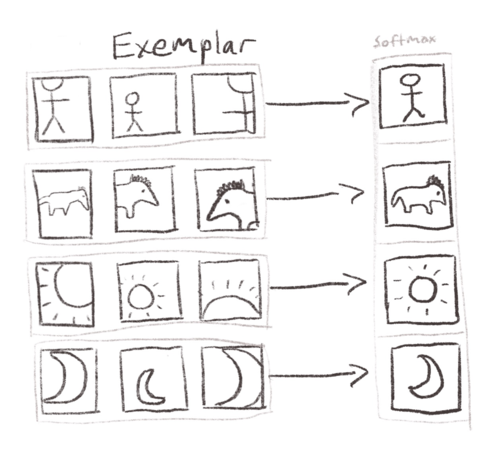 Exemplar
Softmax